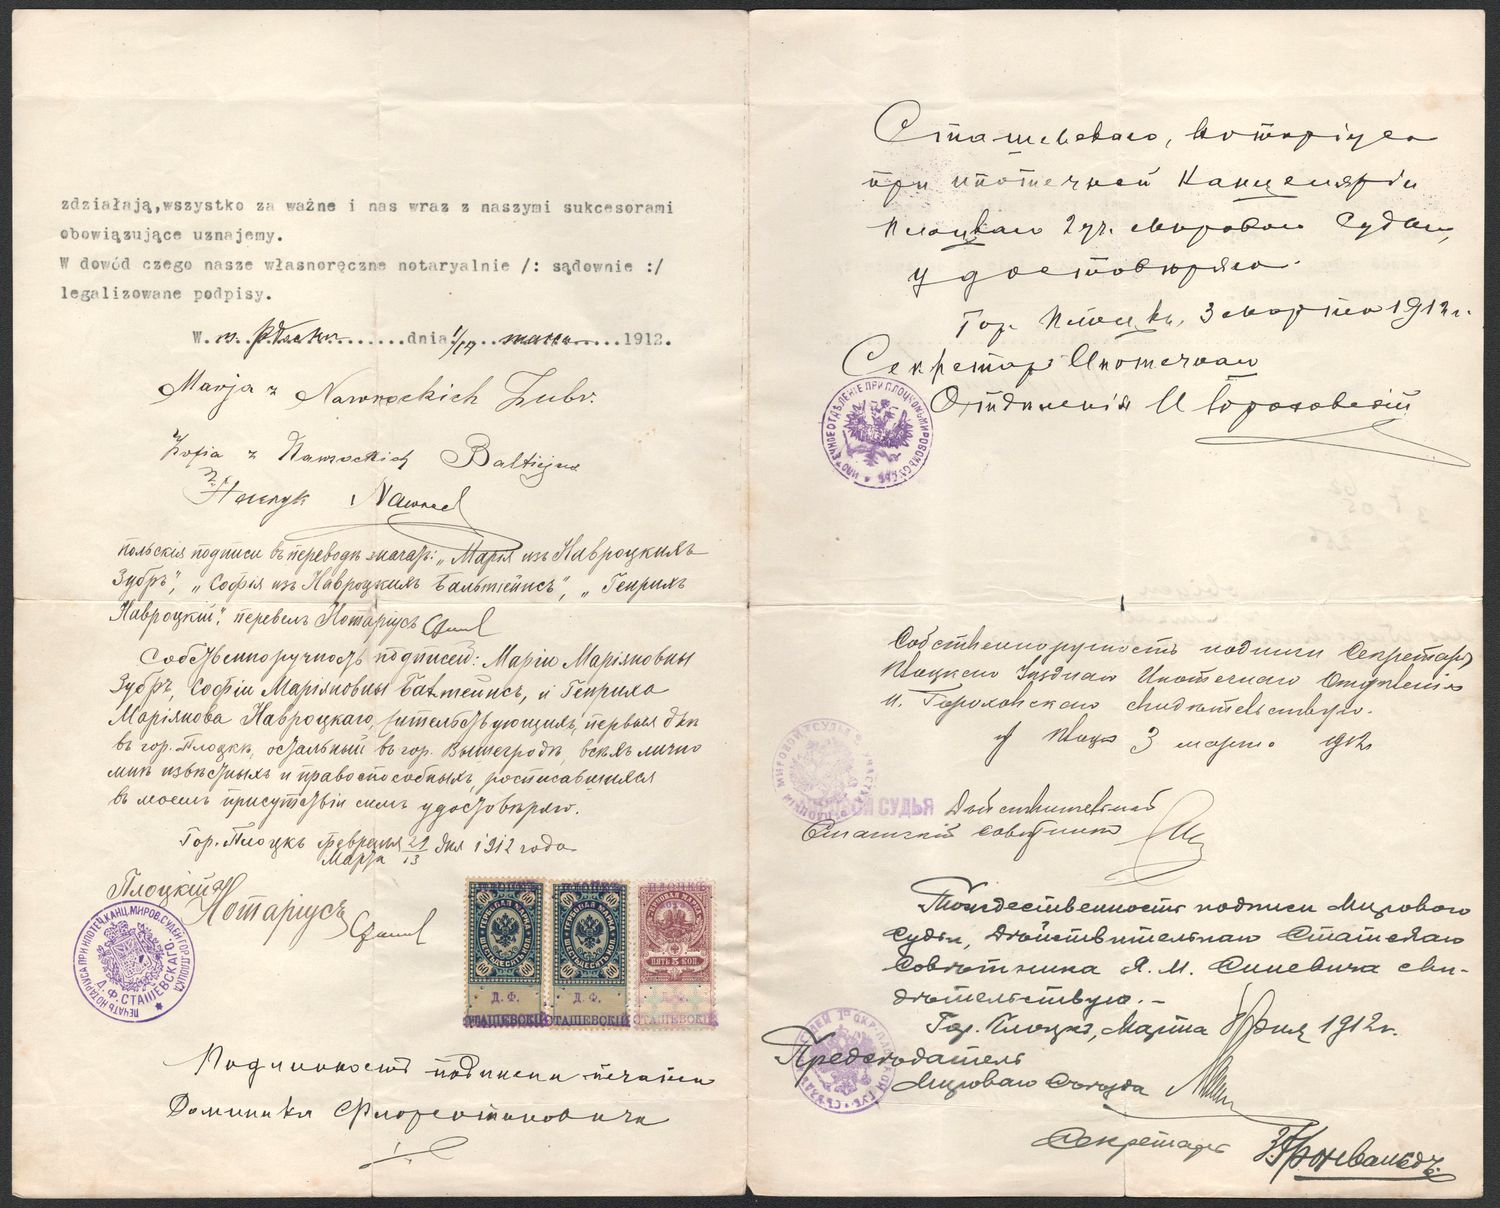 zdziałają,wszystko za ważne i nas wraz z naszymi sukcesorami
obowiązujące uznajemy.
W dowód czego nasze własnoręczne notaryalnie /: sądownie :/
legalizowane podpisy.
W...........dnia 1/14 marca...1912.
Marja z Nawrockich Zubr.
Zofia z Nawrockich
Henryk
польскія подписи въ переводѣ значатъ: „Марія изъ Навроцкихъ
Зубръ", „Софія изъ Навроцкихъ Бальтейпсъ", „Генрихъ
Навроцкій". перевелъ Нотаріусъ
Собственноручность подписей: Маріи Маріяновны
Зубръ, Софіи Маріяновны Бальтейпсъ, и Генриха
Маріянова Навроцкаго, жительствующихъ, первыя двѣ
въ гор. Плоцкѣ, остальный въ гор. Вышегродѣ, всѣхъ лично
мнѣ извѣстныхъ и правоспособныхъ, росписавшихся
въ моемъ присутствіи симъ удостовѣряю.
Гор. Плоцкъ февраля 29 дня 1912 года
Марта 13
Плоцкій
Нотаріусъ
ПЕЧАТЬ НОТАРІУСА ПРИ ИПОТЕЧ. КАНЦ. МИРОВ. СУДЕЙ ГОР. ПЛОЦКА
Д. Ф. СТАШЕВСКАГО.
60 60
ГЕРБОВАЯ МАРКА
ШЕСТЬДЕСЯТЪ КОП.
60 60
Д. Ф.
СТАШЕВСКІЙ
60 60
ГЕРБОВАЯ МАРКА
ШЕСТЬДЕСЯТЪ КОП.
60 60
Д. Ф.
СТАШЕВСКІЙ
ПЛОЦКЪ
ГЕРБОВАЯ МАРКА
ПЯТЬ 5 КОП.
СТАШЕВСКІЙ
Подлинность подписи и печати
Доминика Флорентиновича
Сташевскаго, нотаріуса
при ипотечной Канцеляріи
Плоцкаго 2 уч. Мирового Судьи,
удостовѣряю.
Гор. Плоцкъ, 3 Марта 1912 г.
Секретарь Ипотечнаго
Отдѣленія И Гороховскій
ИПОТЕЧНОЕ ОТДѢЛЕНІЕ ПРИ ПЛОЦКОМЪ МИРОВОМЪ СУДЬѢ
Собственноручность подписи Секретаря
Плоцкаго Уѣзднаго Ипотечнаго Отдѣленія
И. Гороховскаго свидѣтельствую.
Плоцкъ 3 марта 1912 г.
МИРОВОЙ СУДЬЯ
Дѣйствительный
Статскій совѣтникъ
Тождественность подписи Мирового
Судьи, Дѣйствительнаго Статскаго
Совѣтника Я. М. Синевича сви-
дѣтельствую.-
Гор. Плоцкъ, Марта 1912 г.
Предсѣдатель
Мирового Съѣзда
Секретарь